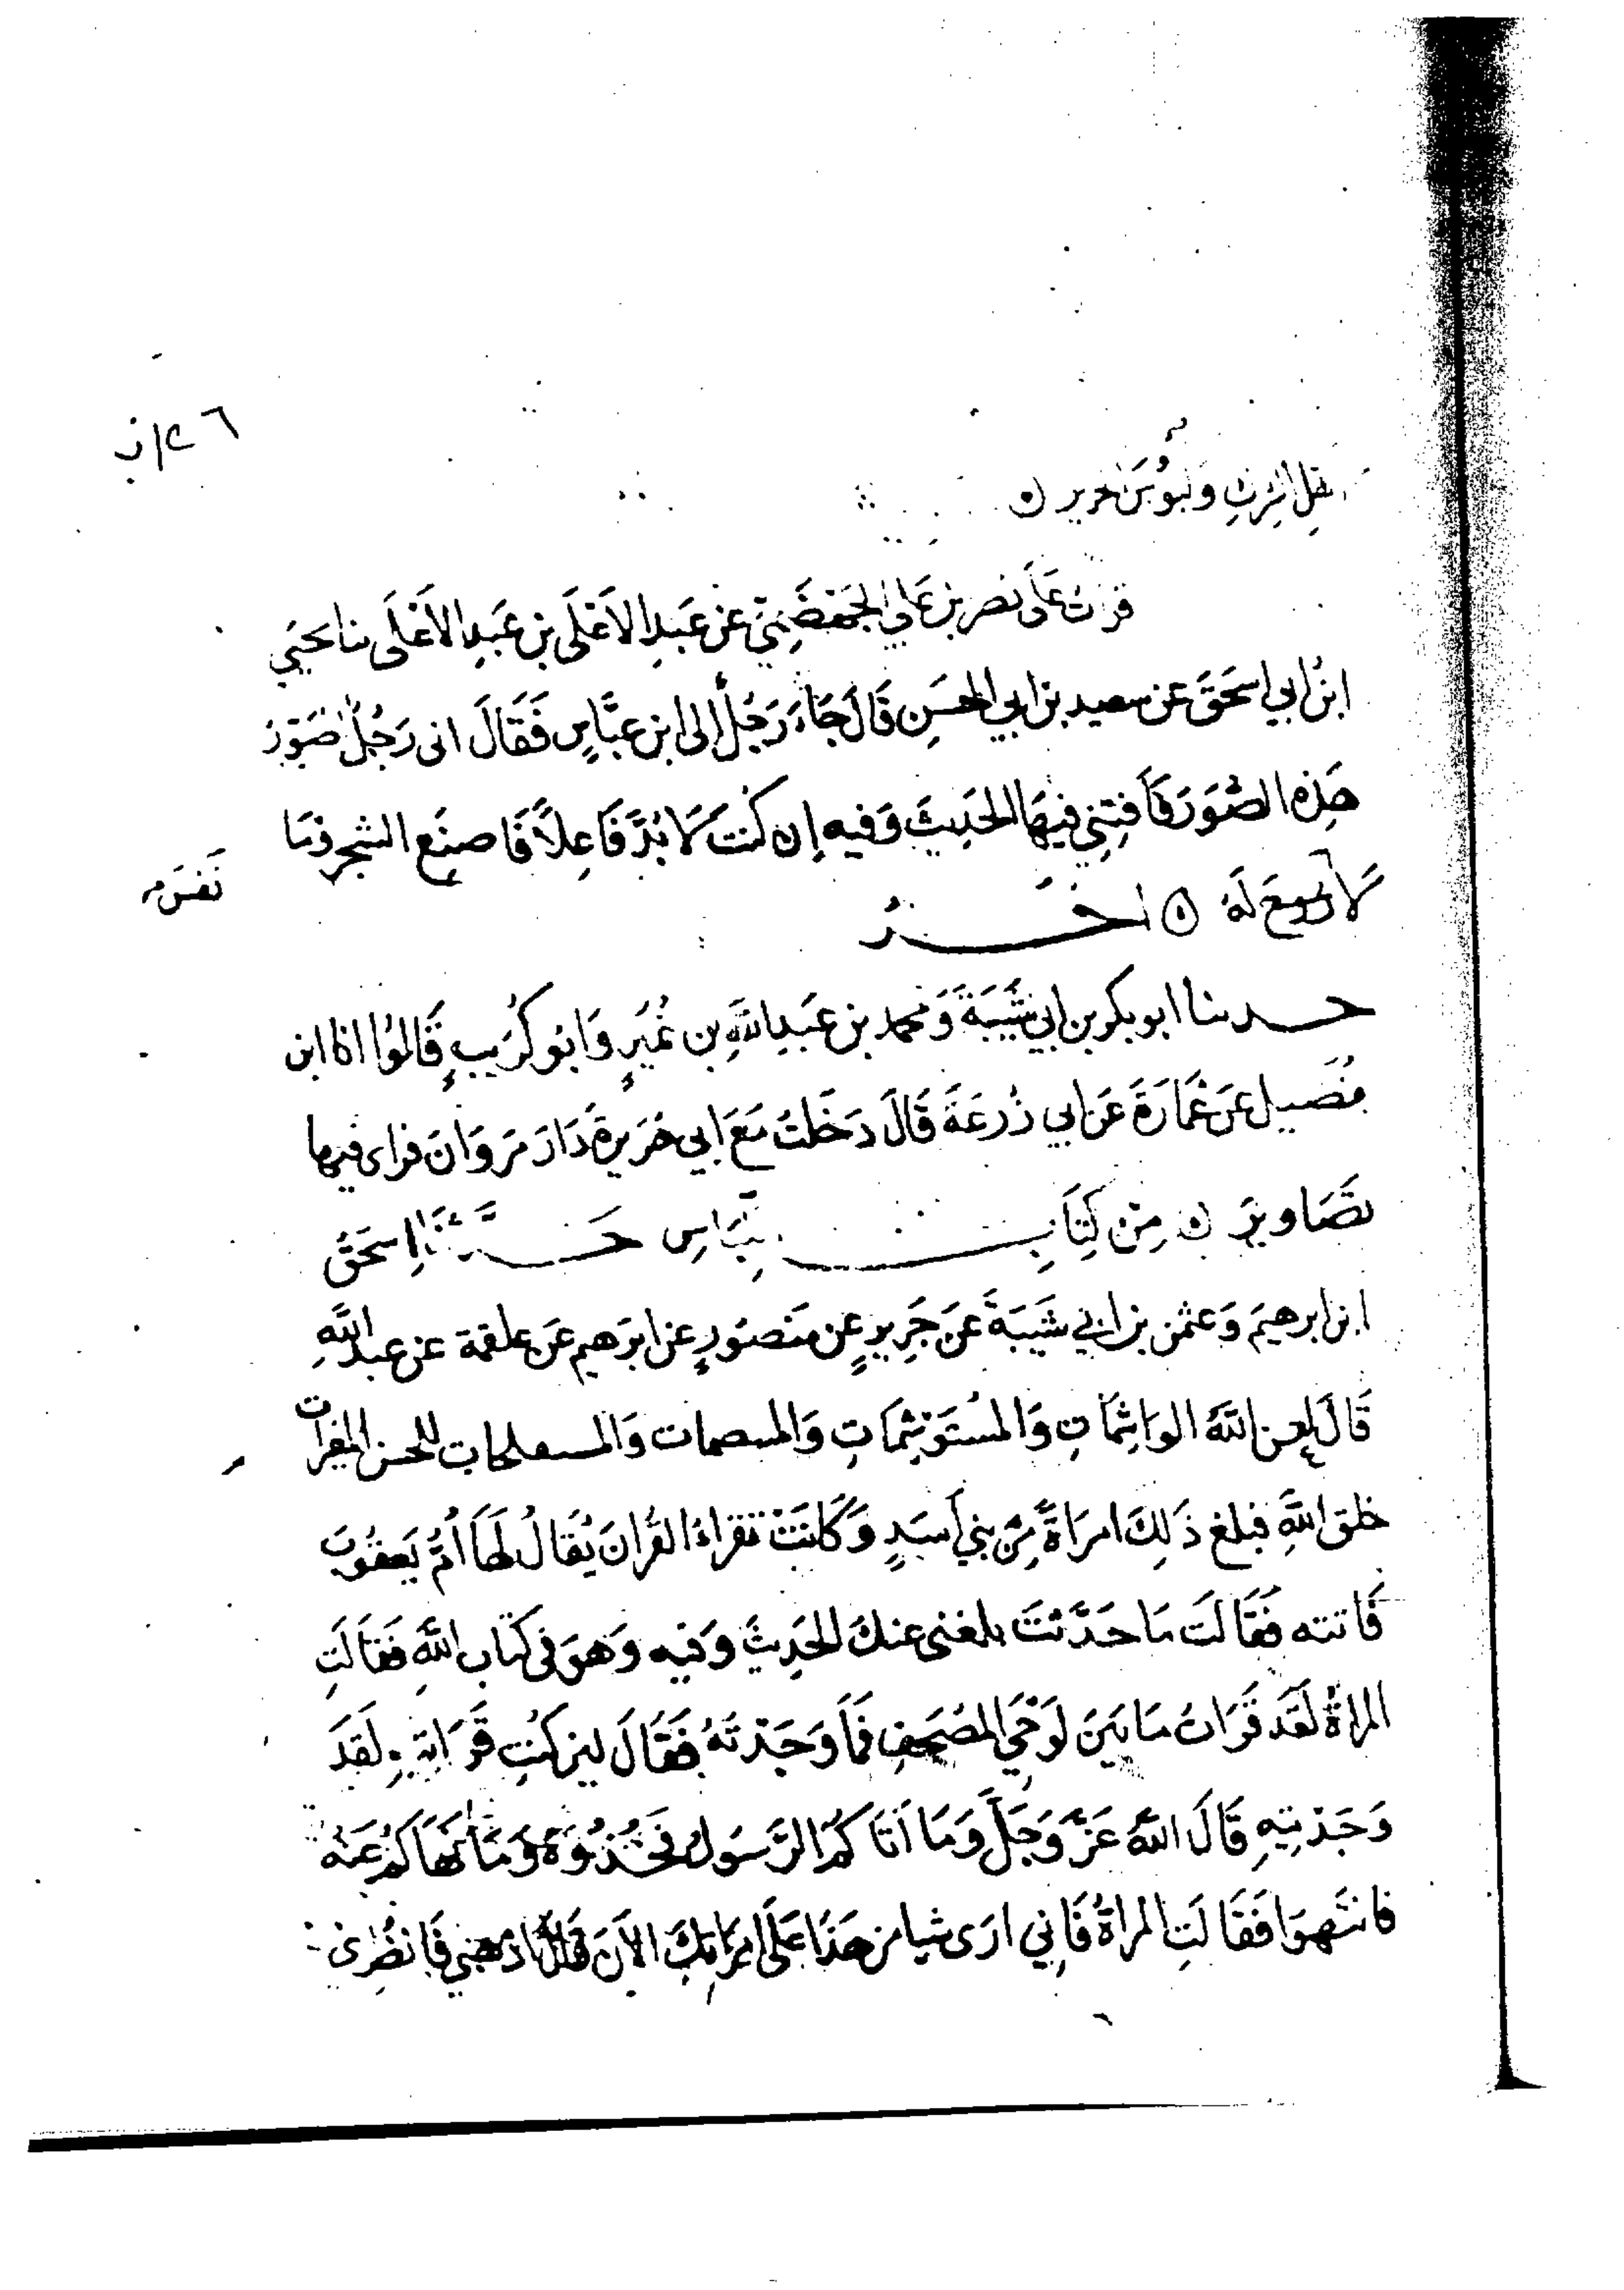 ٤٦/ب
ولبوس حرير ه
قرات عَلَى نصر بن عَلي الجَهْضَمِيّ عَن عَبدِ الاَعْلَى بن عَبدِ الاَعْلَى نا يحيَي
ابنُ ابي اسحَقَ عن سعيد بن ابي الحسَن قَالَ جَاءَ رَجُلٌ إلى ابن عبَّاسٍ فَقَالَ انى رَجُلٌ اصَوّرُ
هَذِه الصُّوَرَ فَاَفتِنِي فِيهَا الحَدِيثَ وَفيه إن كنتَ لَا بُدَّ فَاعِلاً فَاصنَع الشجر وَمَا
نَفسَ
لَا لَهُ ه اخَـــرُ
حـدثنا ابو بكر بن ابي شَيبَةَ وَمحمد بن عبدِ اللَّهِ بن نُمَيرٍ وَابُو كُرَيبٍ قَالُوا انا ابن
فُضَيل عَن عُمَارَةَ عَن ابي زُرعَةَ قَالَ دَخَلتُ مَعَ ابي هُرَيرةَ دَارَ مَروَانَ فراى فيها
تصَاويرَ ه مِن كِتَابِ اللِّبَاسِ حَـــدَّثنَا اِسحَقُ
ابن ابرهيمَ وَعثمن بن ابي شَيبَةَ عَن جَرِيرٍ عن منصُورٍ عن ابرَهيم عَن علقمة عن عبد اللَّهِ
قَالَ لعن اللَّهُ الوَاشِمَاتِ وَالمُستَوشِمَاتِ وَالمتنمصات وَالمتفلجات للحسن المغيرات
خلق اللَّهِ فبلغ ذَلِكَ امرَاةً مِّن بني أسَدٍ وَكَانَتْ تقراءُ القُرانَ يُقَالُ لَهَا أُمُّ يَعقُوبَ
فَاتته فَقَالَت مَا حَدَّثتَ بلغنى عنكَ الحَدِيثَ وَفيه وَهوَ فى كتاب اللَّهِ فَقَالَتِ
المراةُ لَقَد قَرَاتُ مَا بَينَ لَوْحَيِ المصحَفِ فَمَا وَجَدتهُ فَقَالَ لين كنتِ قَرَاتِيهِ لَقَد
وَجَدتِيهِ قَالَ اللَّهُ عَزَّ وَجَلَّ وَمَا اَتَاكُمُ الرَّسُولُ فَخُذُوهُ وَمَا نَهَاكُم عَنهُ
فانتَهوا فَقَالَتِ المراةُ فَاِني ارَى شيا من هَذَا عَلَى امرَاتِكَ الاَنَ قَالَ اذهبي فَانظُرِى